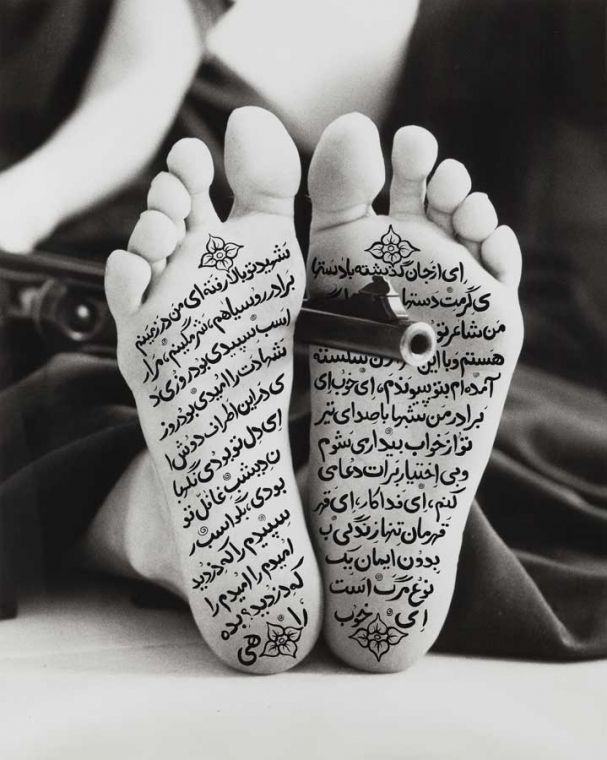 ای از جان گذشته با دستها
ی گرمت دستها
من شاعر تو
هستم و با این تن شکسته
آمده ام بتو پیوندم، ای خوب ای
برادر من شبها با صدای تیر
تو از خواب بیدار می شوم
و بی اختیار برات دعا می
کنم، ای فداکار، ای قهر
قهرمان تنها زندگی ب
بدون ایمان یک
نوع مرگ است
ای خوب
شهید تو پاک رفته ای من در زمینم
برادر رو سیاهم، شرمگینم، مرا
اسب سپیدی بود روزی د
شهادت را امیدی بود روز
ی در این اطراف دوش ا
ی دل تو بودی نگهبا
ن دیشب غافل تو
بودی، بگو اسب ر
سپیدم را که دزدید
امیدم را امیدم را
که دزدید؟ بده
را
هی